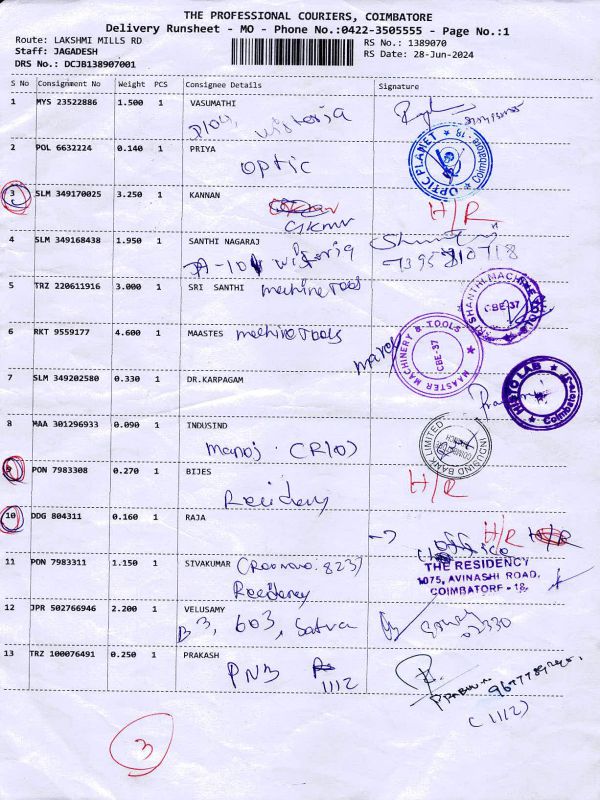 THE PROFESSIONAL COURIERS, COIMBATORE
Delivery Runsheet - MO - Phone No.:0422-3505555 - Page No.:1
Route: LAKSHMI MILLS RD
RS No.: 1389070
Staff: JAGADESH
RS Date: 28-Jun-2024
DRS No.: DCJB138907001
S No Consignment No Weight PCS Consignee Details Signature
1 MYS 23522886 1.500 1 VASUMATHI
2 POL 6632224 0.140 1 PRIYA
optic
OPTIC PLANET * Coimbatore - 18. *
3 SLM 349170025 3.250 1 KANNAN
H/R
4 SLM 349168438 1.950 1 SANTHI NAGARAJ
5 TRZ 220611916 3.000 1 SRI SANTHI machine Tools
CBE-37
6 RKT 9559177 4.600 1 MAASTES machine Tools
MAASTER MACHINERY & TOOLS
CBE-37
7 SLM 349202580 0.330 1 DR.KARPAGAM
HISTO LAB
Coimbatore
8 MAA 301296933 0.090 1 INDUSIND
manoj. (R10)
INDUSIND BANK LIMITED
9 PON 7983308 0.270 1 BIJES
H/R
Recidency
10 DDG 804311 0.160 1 RAJA
H/R H/R
11 PON 7983311 1.150 1 SIVAKUMAR (Room no. 823)
Recidency
THE RESIDENCY
1075, AVINASHI ROAD,
COIMBATORE - 18
12 JPR 502766946 2.200 1 VELUSAMY
B3, 603, Satva
13 TRZ 100076491 0.250 1 PRAKASH
PNB
1112
(1112)
3